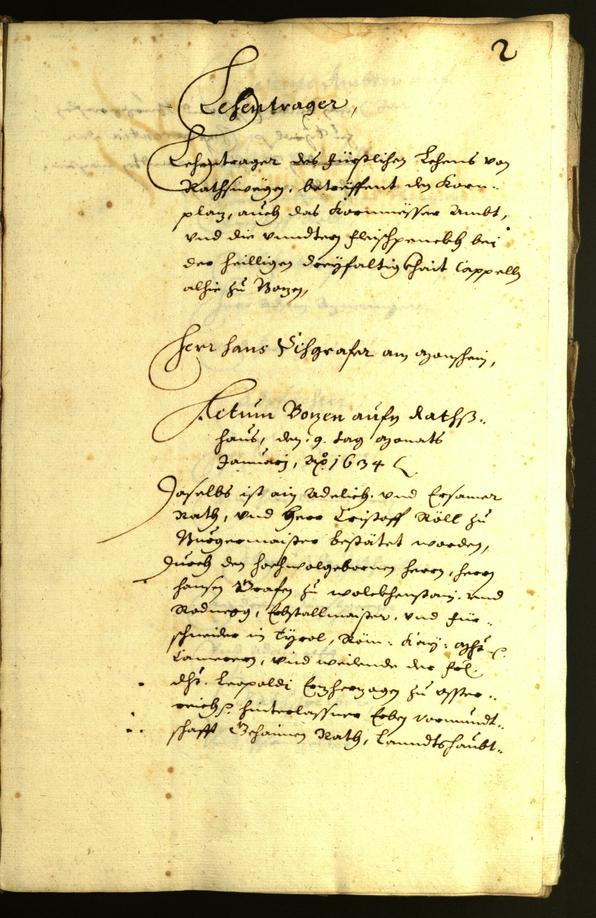 2
Lehentrager,
Lehentrager des fürstlichen Lehens von
Rathswegen, betreffent den Korn-
plaz, auch das Kornmesser Ambt,
vnd die vnndten fleischpenckh bei
der heilligen dreyfaltigkhait Cappelln
alhie zu Bozen,
Herr Hans
Actum Bozen aufm Raths-
haus, den 9. tag monats
Januarj, Ao 1634
Daselbs ist ain Adelich. vnd Ersamer
Rath, vnd Herr Cristoff Röll zu
Burgermaister bestätet worden,
durch den hochwolgebornen herrn, herrn
hansen Grafen zu wolckhenstain vnd
Rodnegg, Erbstallmaister, vnd für-
schneider in Tyrol, Röm: Kay: Mt: 
Camerern, vnd weilende der frl:
dht: Leopoldi Erzherzogen zu Osster-
reich hinterlassner Erben vormundt-
schafft Gehaimen Rath, Lanndtshaubt-